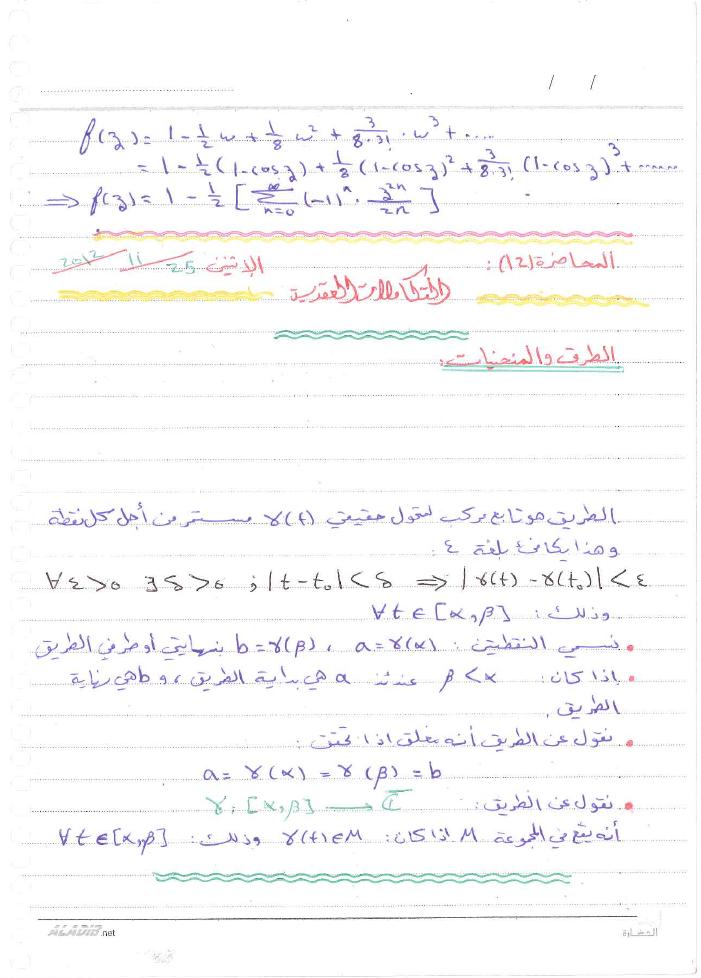 / /
f(z) = 1 - 1/2 w + 1/8 w² + 3/(8·3!) · w³ + .....
= 1 - 1/2 (1-cos z) + 1/8 (1-cos z)² + 3/(8·3!) (1-cos z)³ + ......
⇒ f(z) = 1 - 1/2 [ ∑_{n=0}^{∞} (-1)ⁿ · z²ⁿ/2n ]
المحاضرة (12): الإثنين 25 11 2012
التكاملات العقدية
الطرق والمنحنيات:
الطريق هو تابع مركب لمتحول حقيقي γ(t) مستمر من أجل كل نقطة
وهذا يكافئ بلغة ε:
∀ε>0 ∃δ>0 ; |t-t₀|<δ ⇒ |γ(t) - γ(t₀)|<ε
وذلك: ∀t∈[α,β]
• نسمي النقطتين: a=γ(α) ، b=γ(β) بنهايتي أو طرفي الطريق
• إذا كان: β<α عندئذ a هي بداية الطريق ، و b هي نهاية
الطريق.
• نقول عن الطريق أنه مغلق اذا تحقق:
a = γ(α) = γ(β) = b
• نقول عن الطريق: γ: [α,β] → C̅
أنه يقع في المجموعة M اذا كان: γ(t)∈M وذلك: ∀t∈[α,β]
ALADIB.net